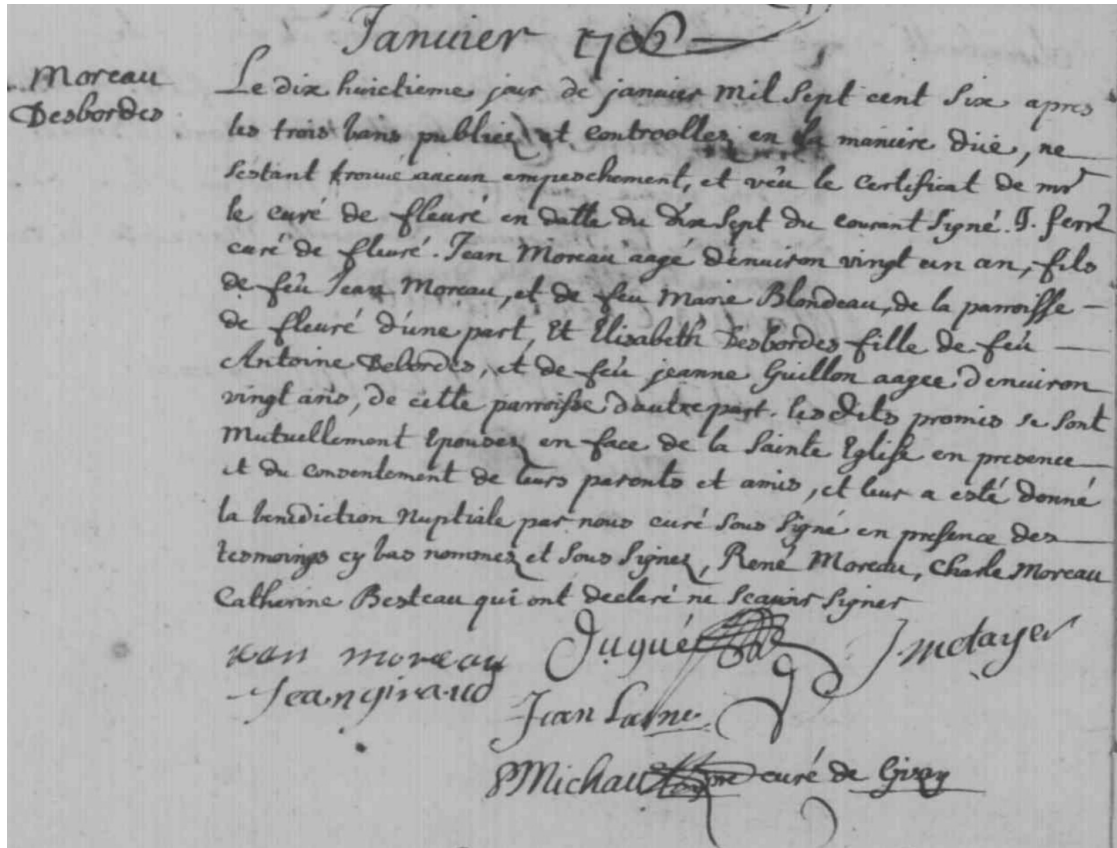 Januier 1706
Moreau
Desbordes
Le dix huictieme jour de januier mil sept cent six apres
les trois bans publiez et controollez en la maniere düe, ne
s'estant trouué aucun empeschement, et vëu le certificat de mr
le curé de fleuré en datte du dix sept du courant signé. J. ferré
curé de fleuré. Jean Moreau aagé d'enuiron vingt un an, fils
de feü Jean Moreau, et de feü Marie Blondeau, de la parroisse
de fleuré d'une part, Et Elisabeth Desbordes fille de feü
Antoine Debordes, et de feü jeanne Guillon aagee d'enuiron
vingt ans, de cette parroisse d'autre part. lesdits promis se sont
mutuellement Epousez en face de la sainte Eglise en presence
et du consentement de leurs parents et amis, et leur a esté donné
la benediction nuptiale par nous curé sous signé en presence des
tesmoings cy bas nommez et sous signez, René Moreau, Charle Moreau
Catherine Besteau qui ont declaré ne scauoir signer
jean moreau Dugué J metayer
Jean giraud
Jean Larne
PMichau pre curé de Gizay